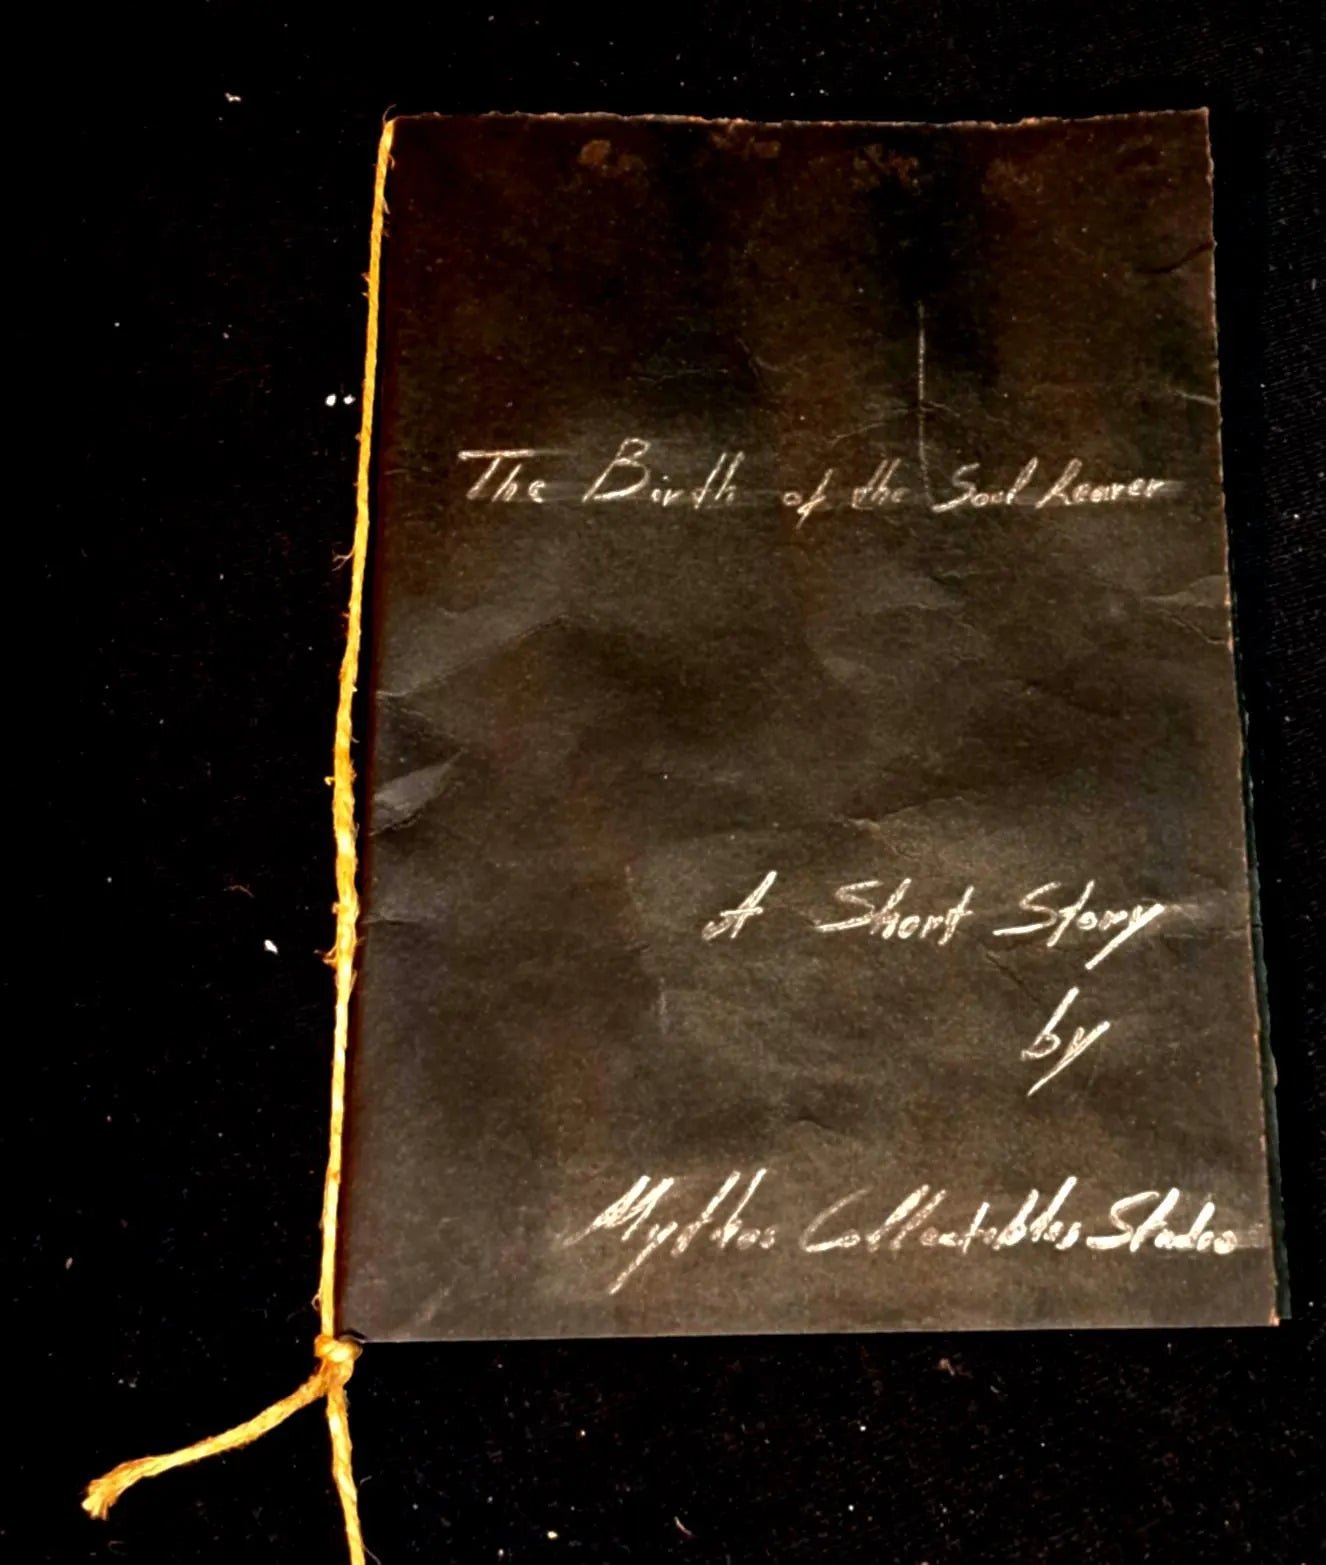 The Birth of the Soul Reaver
A Short Story
by
Mythos Collectibles Studio